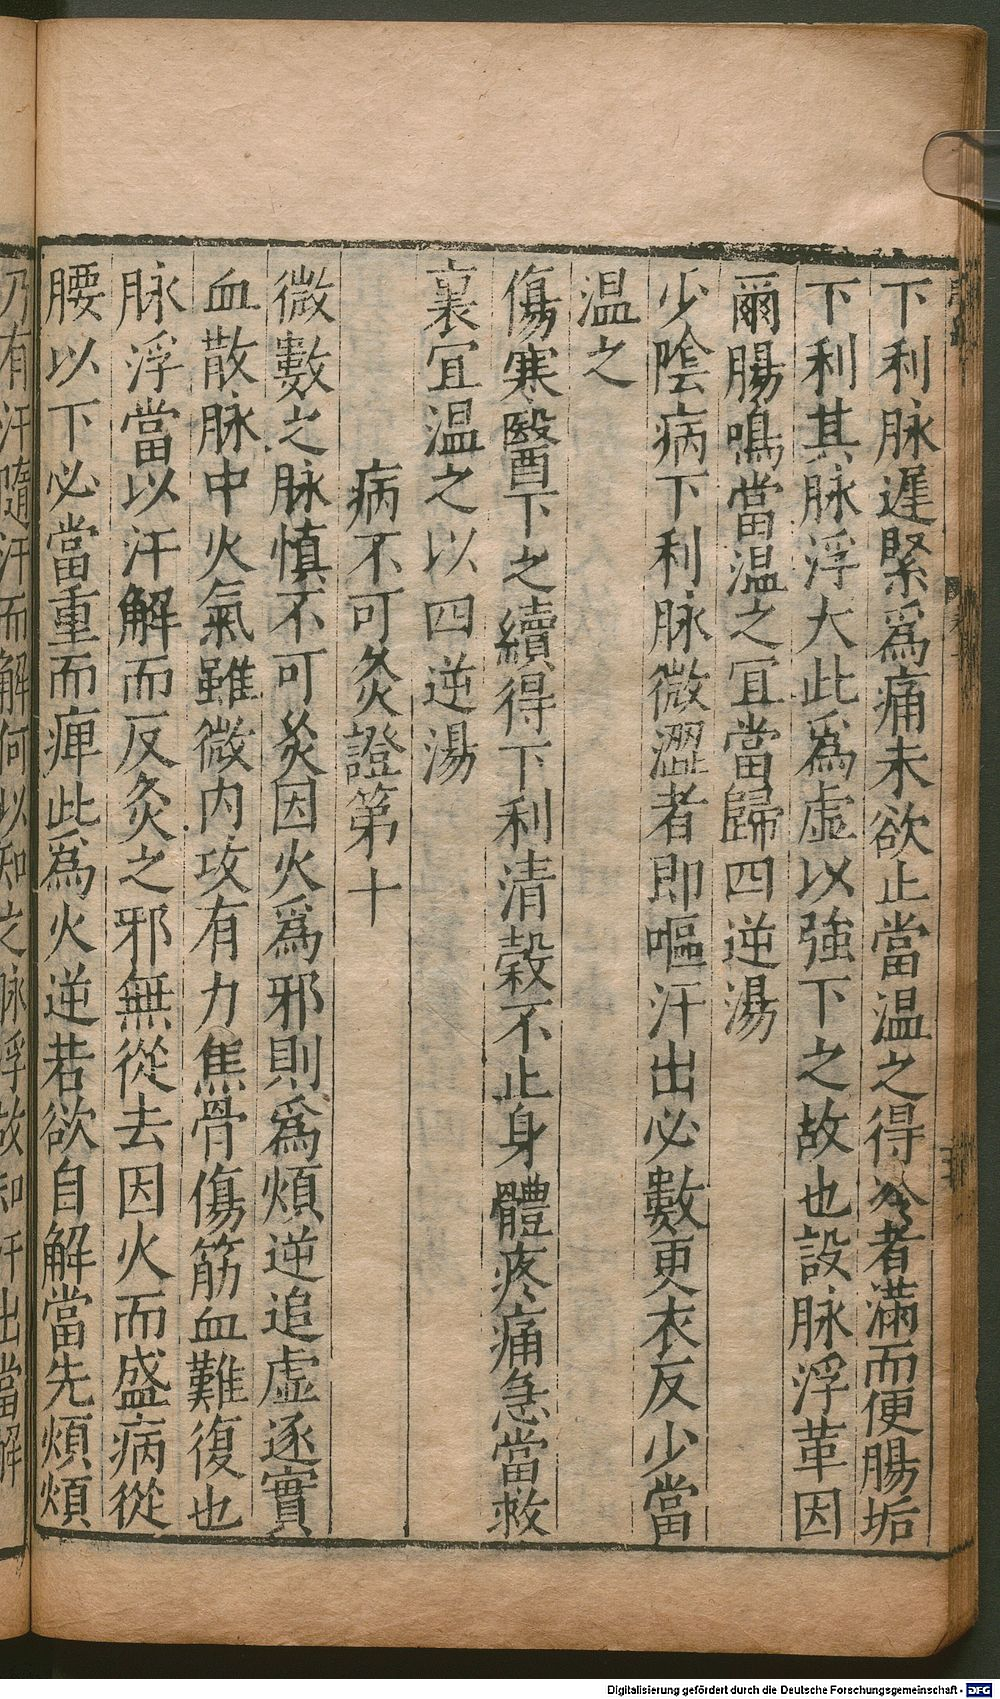 下利脉遲緊爲痛未欲止當温之得冷者滿而便腸垢
下利其脉浮大此爲虛以強下之故也設脉浮革因
爾腸鳴當温之冝當歸四逆湯
少陰病下利脉微澀者即嘔汗出必數更衣反少當
温之
傷寒醫下之續得下利清穀不止身體疼痛急當救
裏冝温之以四逆湯
病不可灸證第十
微數之脉慎不可灸因火爲邪則爲煩逆追虛逐實
血散脉中火氣雖微内攻有力焦骨傷筋血難復也
脉浮當以汗解而反灸之邪無從去因火而盛病從
腰以下必當重而痺此爲火逆若欲自解當先煩煩
乃有汗隨汗而解何以知之脉浮故知汗出當解
Digitalisierung gefördert durch die Deutsche Forschungsgemeinschaft - DFG